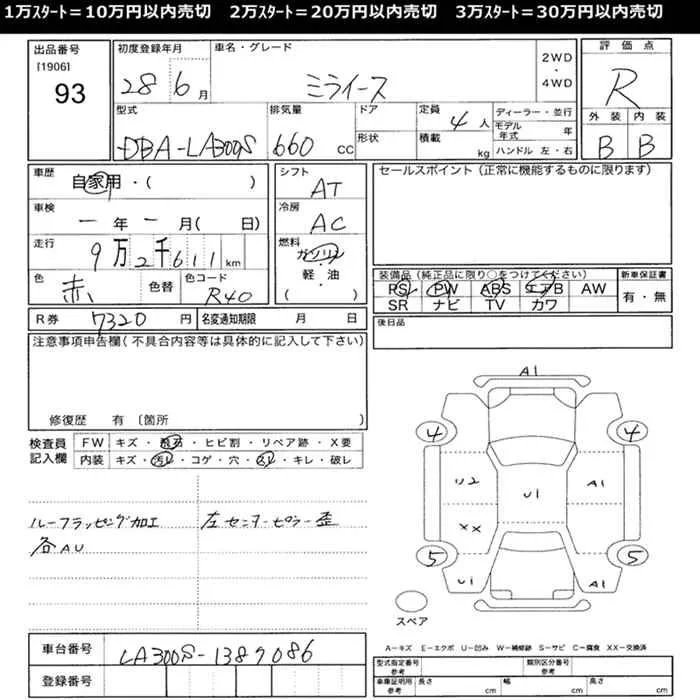 1万ｽﾀｰﾄ＝10万円以内売切 2万ｽﾀｰﾄ＝20万円以内売切 3万ｽﾀｰﾄ＝30万円以内売切
出品番号 初度登録年月 車名・グレード 評価点
[1906] 2WD・4WD
93 28 6月 ミライース R
型式 排気量 ドア 定員 4人 ディーラー・並行 外装 内装
DBA-LA300S 660 CC 形状 積載 kg モデル年式 年 ハンドル 左・右 B B
車歴 自家用・( ) シフト AT セールスポイント（正常に機能するものに限ります）
車検 一年一月( 日) 冷房 AC
走行 9万2千611km 燃料 ガソリン・軽・油 ( )
色 赤 色替 色コード R40
装備品（純正品に限り○をつけてください） 新車保証書
PS PW ABS エアB AW 有・無
SR ナビ TV カワ
R券 7320円 名変通知期限 月 日 後日品
注意事項申告欄（不具合内容等は具体的に記入して下さい）
修復歴 有〔箇所 〕
検査員記入欄 FW キズ・飛石・ヒビ割・リペア跡・X要
内装 キズ・汚レ・コゲ・穴・スレ・キレ・破レ
ルーフラッピング加工 左センターピラー歪
各AU
A1
4 4
U2 U1 A1
XX
5 5
U1 A1
スペア
A－キズ E－エクボ U－凹み W－補修跡 S－サビ C－腐食 XX－交換済
車台番号 LA300S-1389086
登録番号
型式指定番号 参考 類別区分番号 参考
車庫証明用 参考 長さ cm 幅 cm 高さ cm